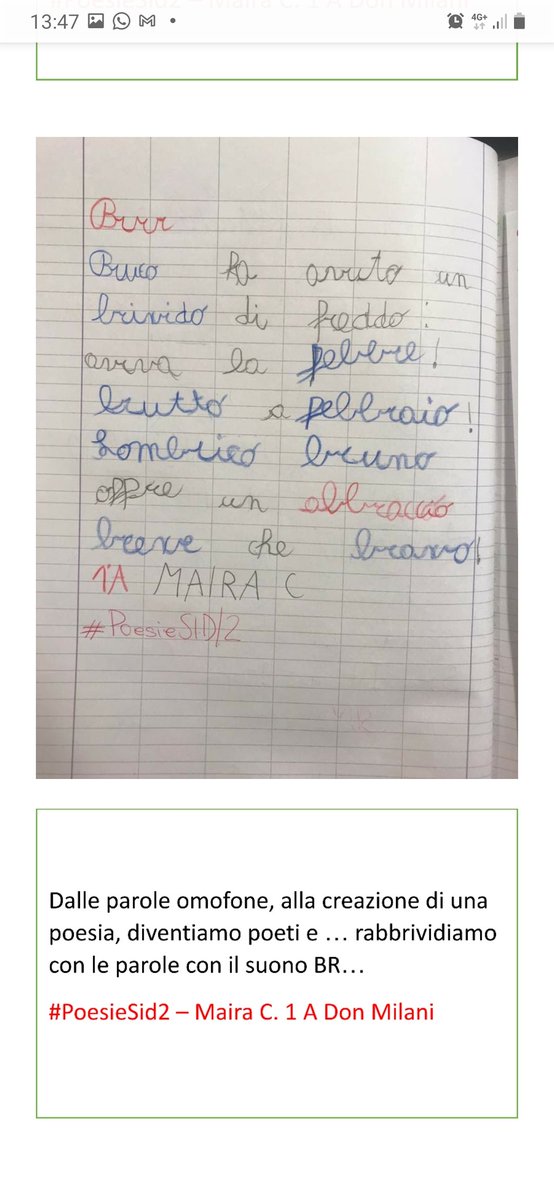 #PoesieSid2 – Maira C. 1 A Don Milani
13:47
4G+
Brrr
Bruco ha avuto un
brivido di freddo:
aveva la febbre!
brutto a febbraio!
Lombrico bruno
offre un abbraccio
breve che bravo!
1ªA MAIRA C
#PoesieSID/2
Dalle parole omofone, alla creazione di una
poesia, diventiamo poeti e … rabbrividiamo
con le parole con il suono BR…
#PoesieSid2 – Maira C. 1 A Don Milani